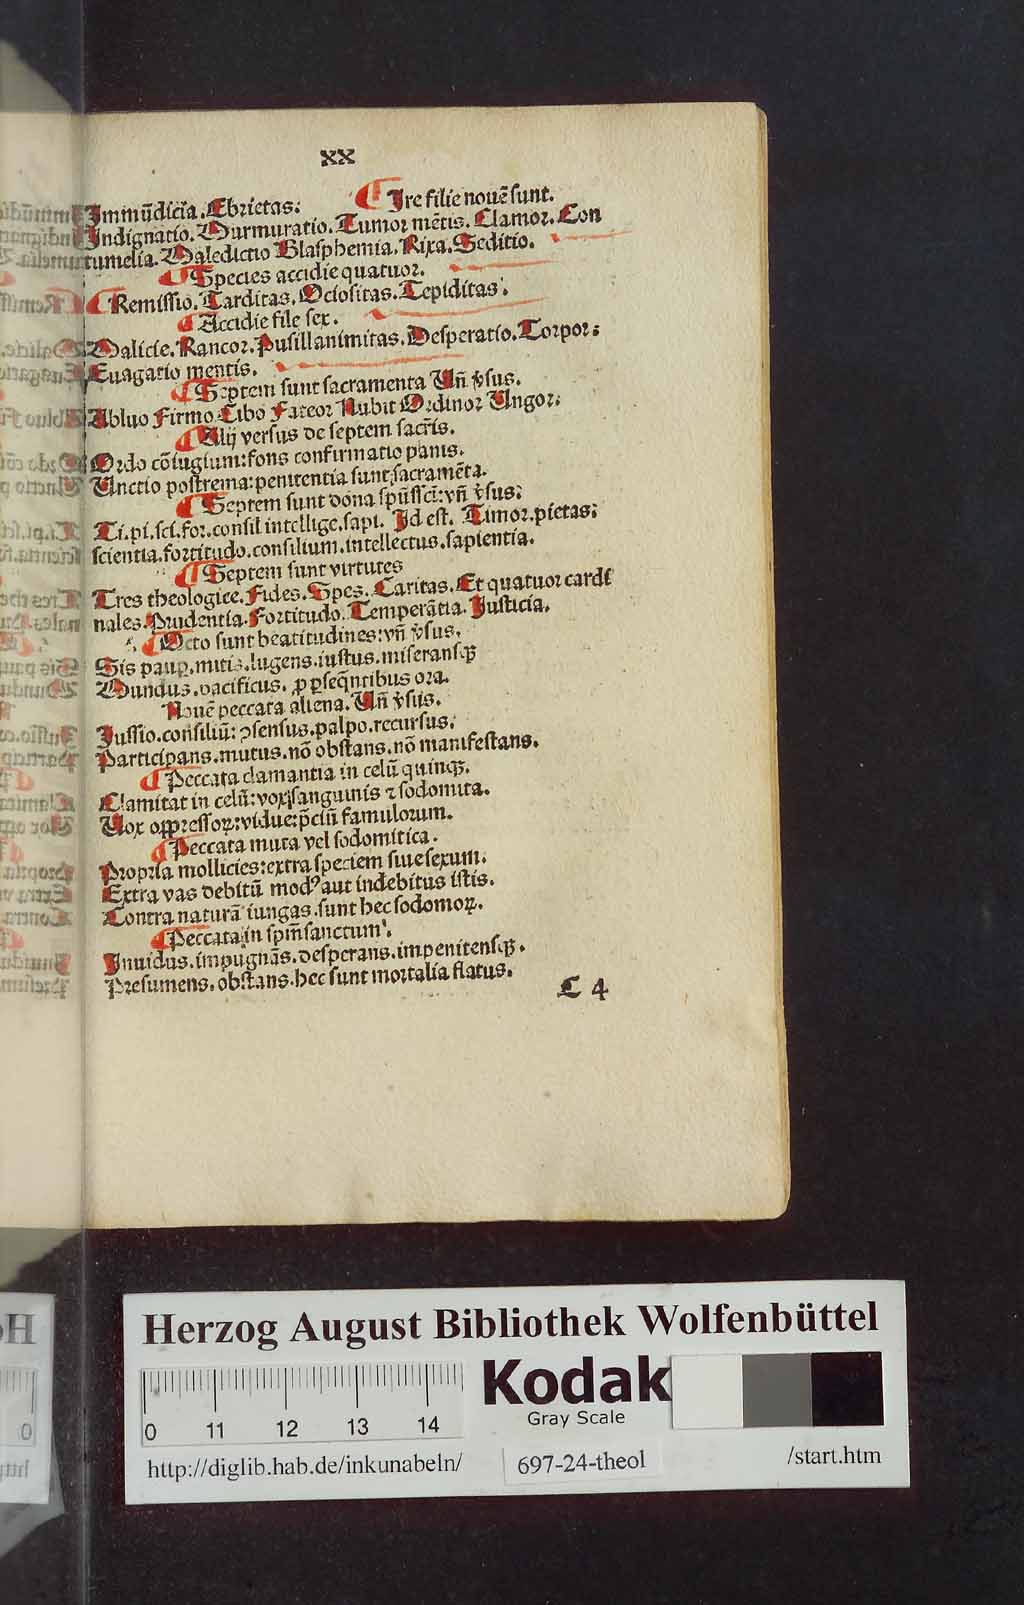 xx
Immūdicia. Ebrietas: ¶ Ire filie nouē sunt.
Indignatio. Murmuratio. Tumor mētis. Clamor. Con
tumelia. Maledictio Blasphemia. Rixa. Seditio.
¶ Species accidie quatuor.
¶ Remissio. Tarditas. Ociositas. Tepiditas:
¶ Accidie file sex.
Malicie. Rancor. Pusillanimitas. Desperatio. Torpor:
Euagatio mentis.
¶ Septem sunt sacramenta Uñ v̄sus.
Abluo Firmo Cibo Fateor Nubit Ordinor Ungor:
¶ Alij versus de septem sacris.
Ordo cōiugium: fons confirmatio panis.
Unctio postrema: penitentia sunt sacramēta.
¶ Septem sunt dona spūssci: vñ v̄sus:
Ti. pi. sci. for. consil intellige. sapi. Id est. Timor. pietas:
scientia. fortitudo. consilium. intellectus. sapientia.
¶ Septem sunt virtutes
Tres theologice. Fides. Spes. Caritas. Et quatuor cardi
nales. Prudentia. Fortitudo. Temperātia. Justicia.
¶ Octo sunt beatitudines: vñ v̄sus.
Sis paup̲. mitis. lugens. iustus. miseransqꝫ
Mundus. pacificus. ꝓ ꝑseq̄ntibus ora.
Nouē peccata aliena. Uñ v̄sus.
Jussio. consiliū: ꝯsensus. palpo. recursus.
Participans. mutus. nō obstans. nō manifestans.
¶ Peccata clamantia in celū quinqꝫ.
Clamitat in celū: vox sanguinis ⁊ sodomita.
Uox oppressoꝝ: vidue: p̄ciū famulorum.
¶ Peccata muta vel sodomitica.
Propria mollicies: extra speciem siue sexum.
Extra vas debitū modꝰ aut indebitus istis.
Contra naturā iungas. sunt hec sodomoꝝ.
¶ Peccata in spm̄ sanctum.
Inuidus. impugnās. desperans. impenitensqꝫ.
Presumens. obstans. hec sunt mortalia flatus.
C 4
Herzog August Bibliothek Wolfenbüttel
0 11 12 13 14
Kodak
Gray Scale
http://diglib.hab.de/inkunabeln/ 697-24-theol /start.htm